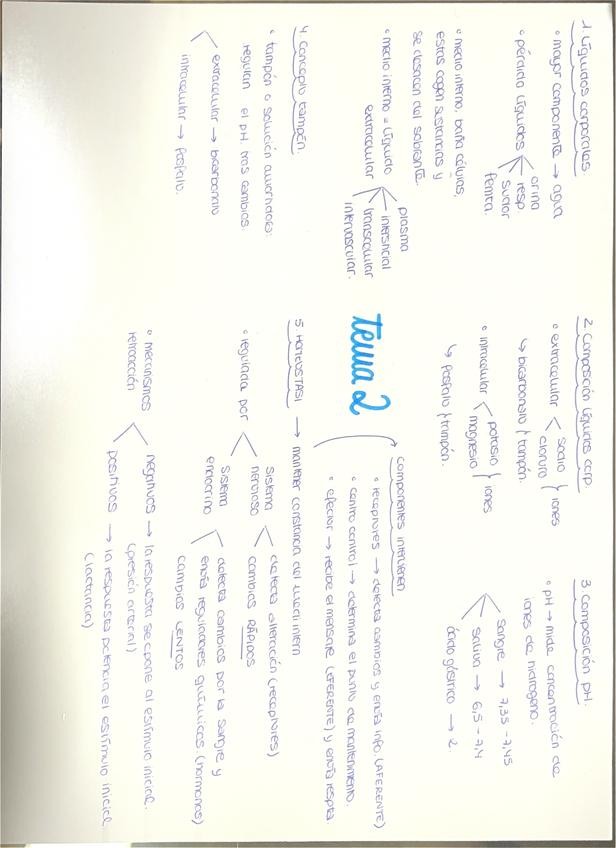 1. Líquidos corporales
• mayor componente → agua
• pérdida líquidos
orina
resp
sudor
femita.
• medio interno: baña células,
estas cogen sustancias y
se deshacen del sobrante.
• medio interno = líquido
extracelular
plasma
intersticial
transcelular
intervascular.
2. Composición líquidos corp.
• extracelular
sodio
cloruro
} iones
↳ bicarbonato } tampón.
• intracelular
potasio
magnesio
} iones
↳ fosfato } tampón.
3. Composición pH.
• pH → mide concentración de
iones de hidrógeno.
sangre → 7,35 - 7,45
saliva → 6,5 - 7,4
ácido gástrico → 2.
tema 2
4. Concepto tampón.
• tampón o solución amortiguadora:
regulan el pH tras cambios.
extracelular → bicarbonato
intracelular → fosfato.
5. HOMEOSTASI → mantener constancia del medi intern
componentes intervienen
• receptores → detecta cambios y envía info. (AFERENTE)
• centro control → determina el punto de mantenimiento.
• efector → recibe el mensaje (EFERENTE) y envía respta
• regulada por
sistema
nervioso
detecta alteración (receptores)
cambios RÁPIDOS
sistema
endocrino
detecta cambios por la sangre y
envía reguladores químicos. (hormonas)
cambios LENTOS
• mecanismos
retroacción
negativos → la respuesta se opone al estímulo inicial.
(presión arterial)
positivos → la respuesta potencia el estímulo inicial
(lactancia)